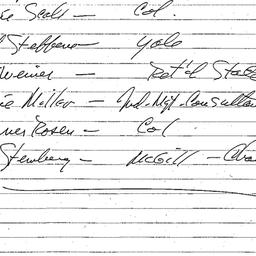 ie Seals - Col.
Steffens Yale
Weiner - Ret'd State
ie Miller - Ind. Mgt. Consultan
ner Rosen - Col
Sternberg - McGill -